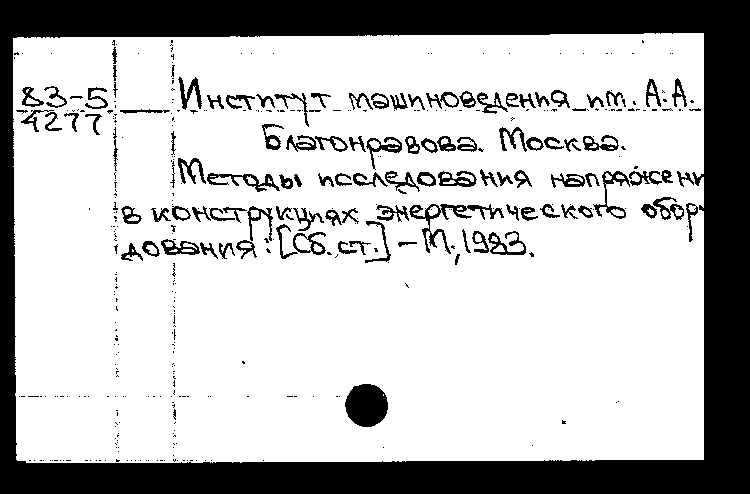 83-5
4277
Институт машиноведения им. А.А.
Благонравова. Москва.
Методы исследования напряжени
в конструкциях энергетического обору
дования: [Сб. ст.] – М., 1983.